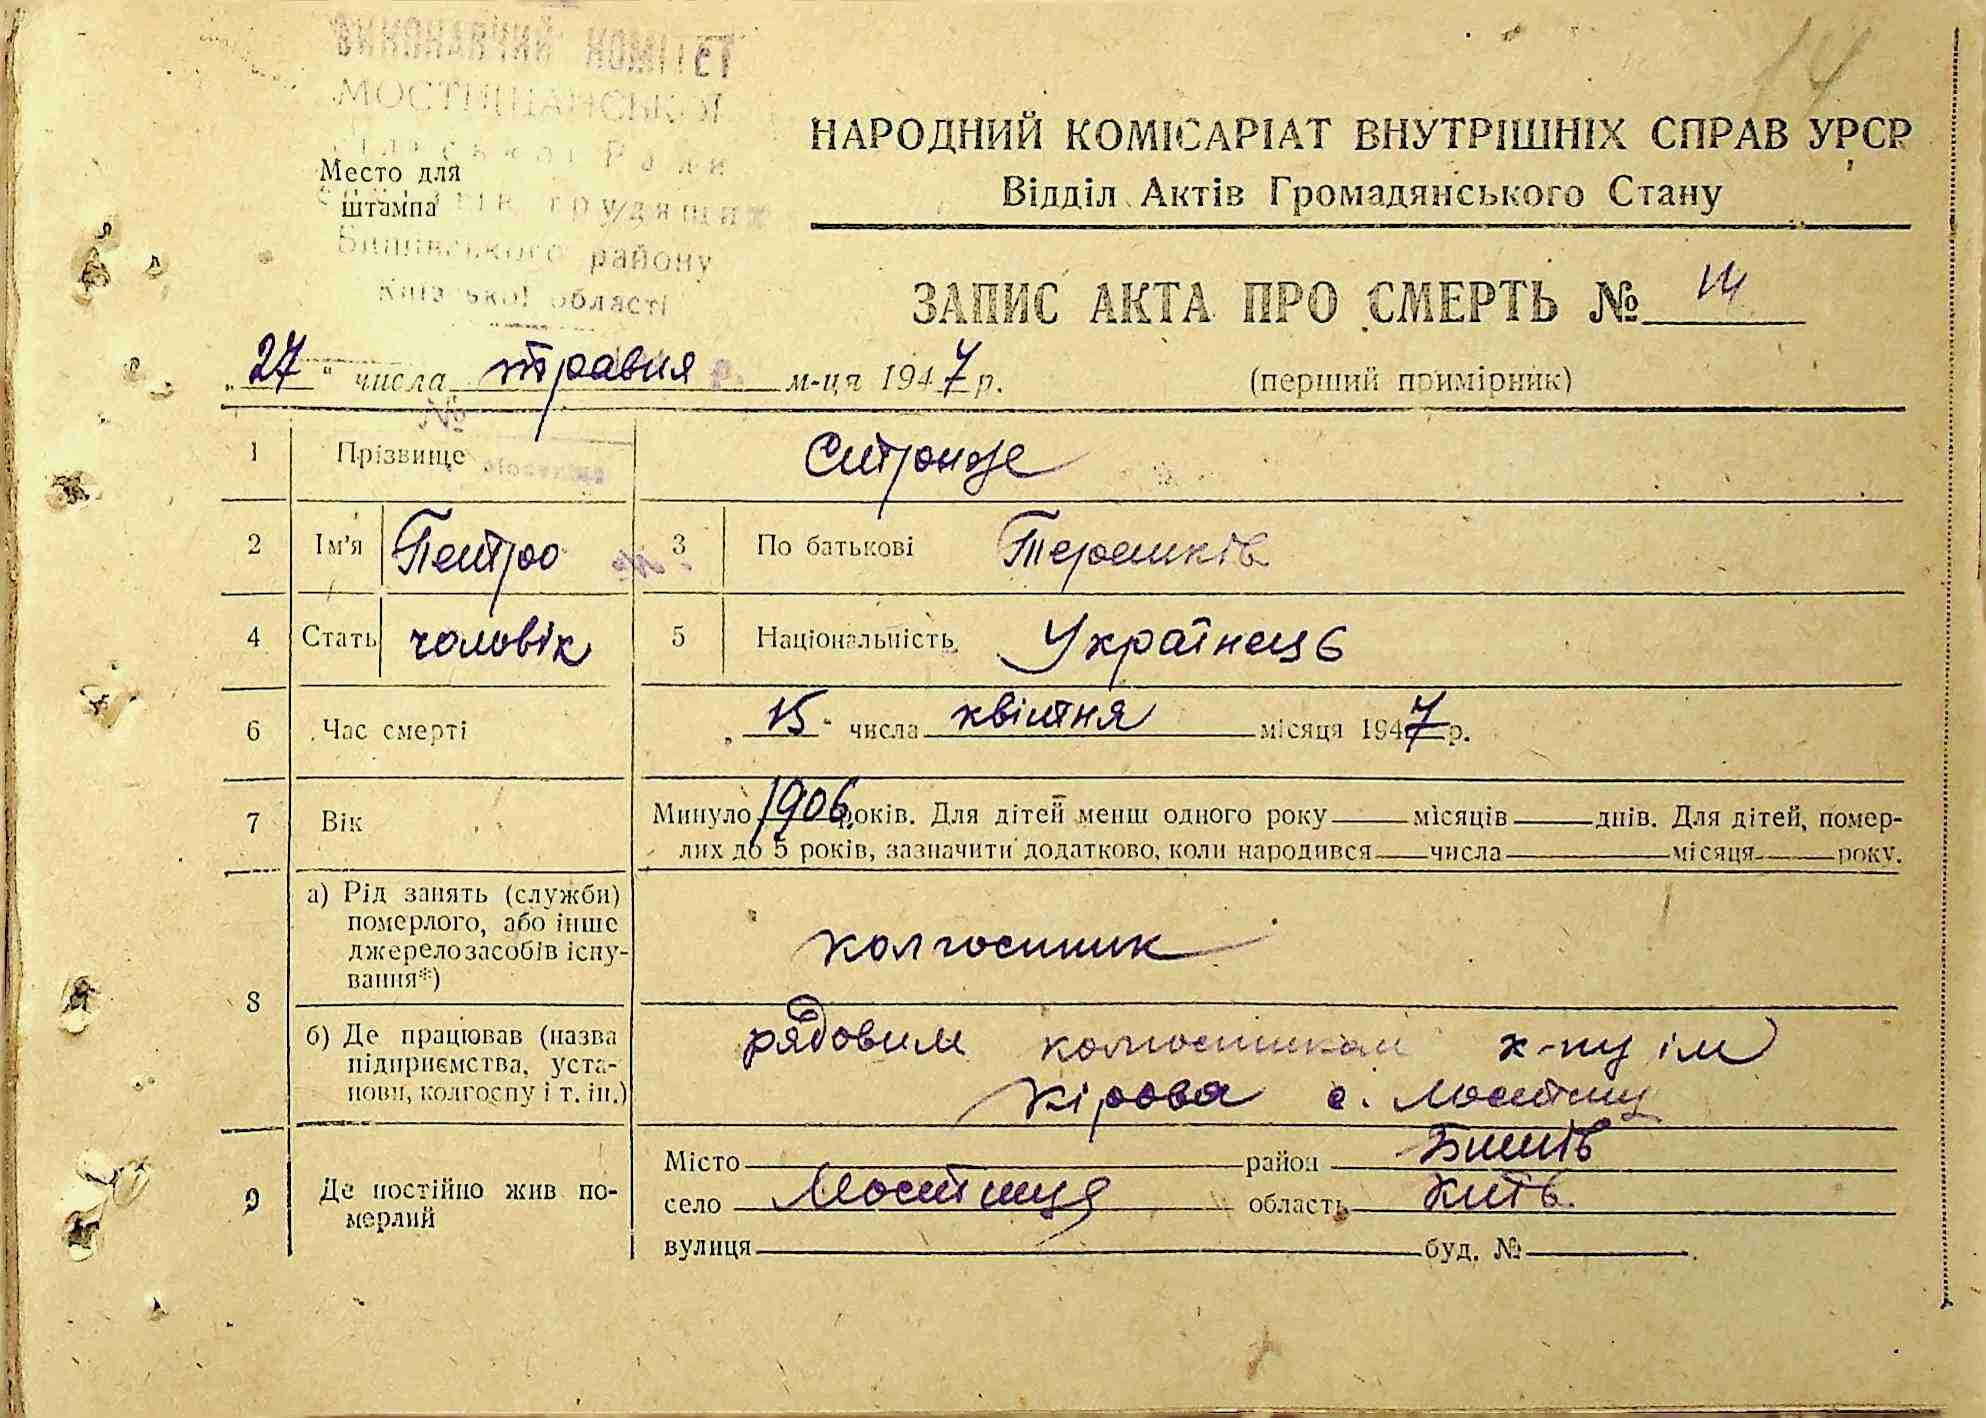 14
ВИКОНАВЧИЙ КОМІТЕТ
МОСТИЩАНСЬКОЇ
Сільської Ради
трудящих
Бишівського району
Київської області
Место для
штампа
НАРОДНИЙ КОМІСАРІАТ ВНУТРІШНІХ СПРАВ УРСР
Відділ Актів Громадянського Стану
ЗАПИС АКТА ПРО СМЕРТЬ № 14
„27“ числа травня м-ця 1947 р.
(перший примірник)
1 Прізвище
2 Ім'я Петро 3 По батькові
4 Стать чоловік 5 Національність Українець
6 Час смерті „15“ числа квітня місяця 1947 р.
7 Вік Минуло 1906 років. Для дітей менш одного року місяців днів. Для дітей, помер-
лих до 5 років, зазначити додатково, коли народився числа місяця року.
8 а) Рід занять (служби)
померлого, або інше
джерело засобів існу-
вання*)
колгоспник
б) Де працював (назва
підприємства, уста-
нови, колгоспу і т. ін.)
рядовим колгоспником к-пу ім
Кірова с. Мостищ
9 Де постійно жив по-
мерлий
Місто район Бишів
село Мостище область Київ.
вулиця буд. №